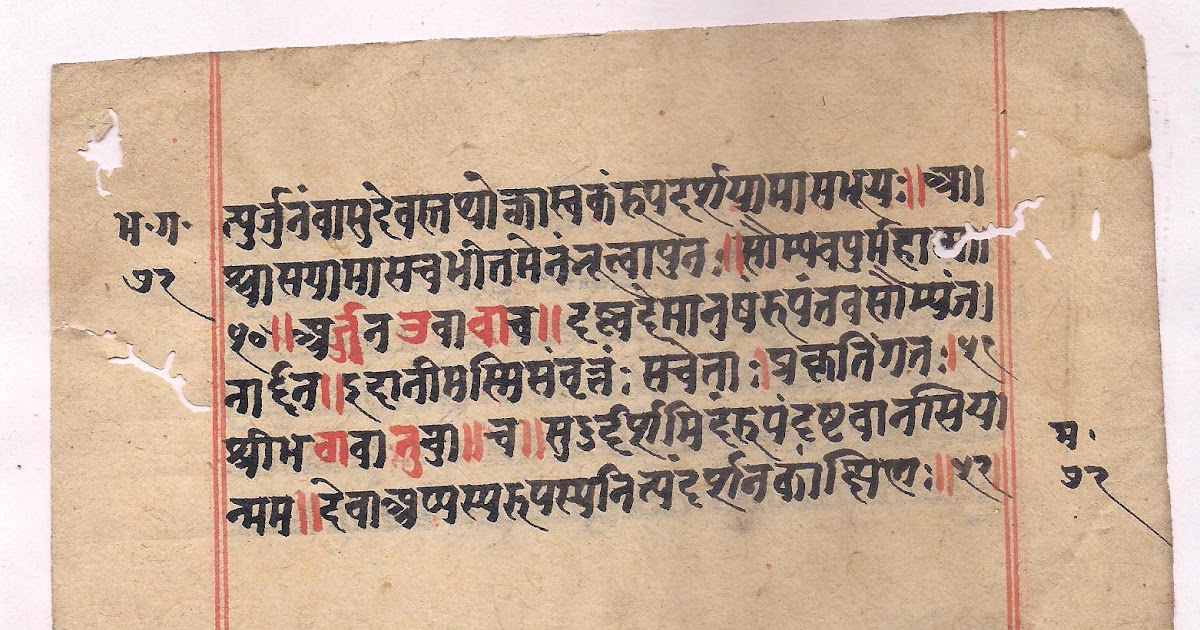 त्पर्जुनंवासुदेवस्तथोक्तास्वकंरुपदर्शयामासभूयः॥आ।
श्वासयामासचभीतमेनंभूत्वापुनः॥सौम्यवपुर्महात्मा
५०॥अर्जुनउवाच॥दृष्ट्वेदंमानुषंरुपंतवसौम्यंज।
नार्द्दन॥इदानीमस्मिसंवृत्तंः सचेताः।प्रकृतिंगतः।५१
श्रीभ वा वा तु वा॥च॥सुऽर्दर्शमिदंरुपंदृष्टवानसिय।
न्मम॥देवाअप्यस्यरुपस्यनित्यंदर्शनकांक्षिणः॥५२॥
भ॰ग॰
७२
म॰
७२